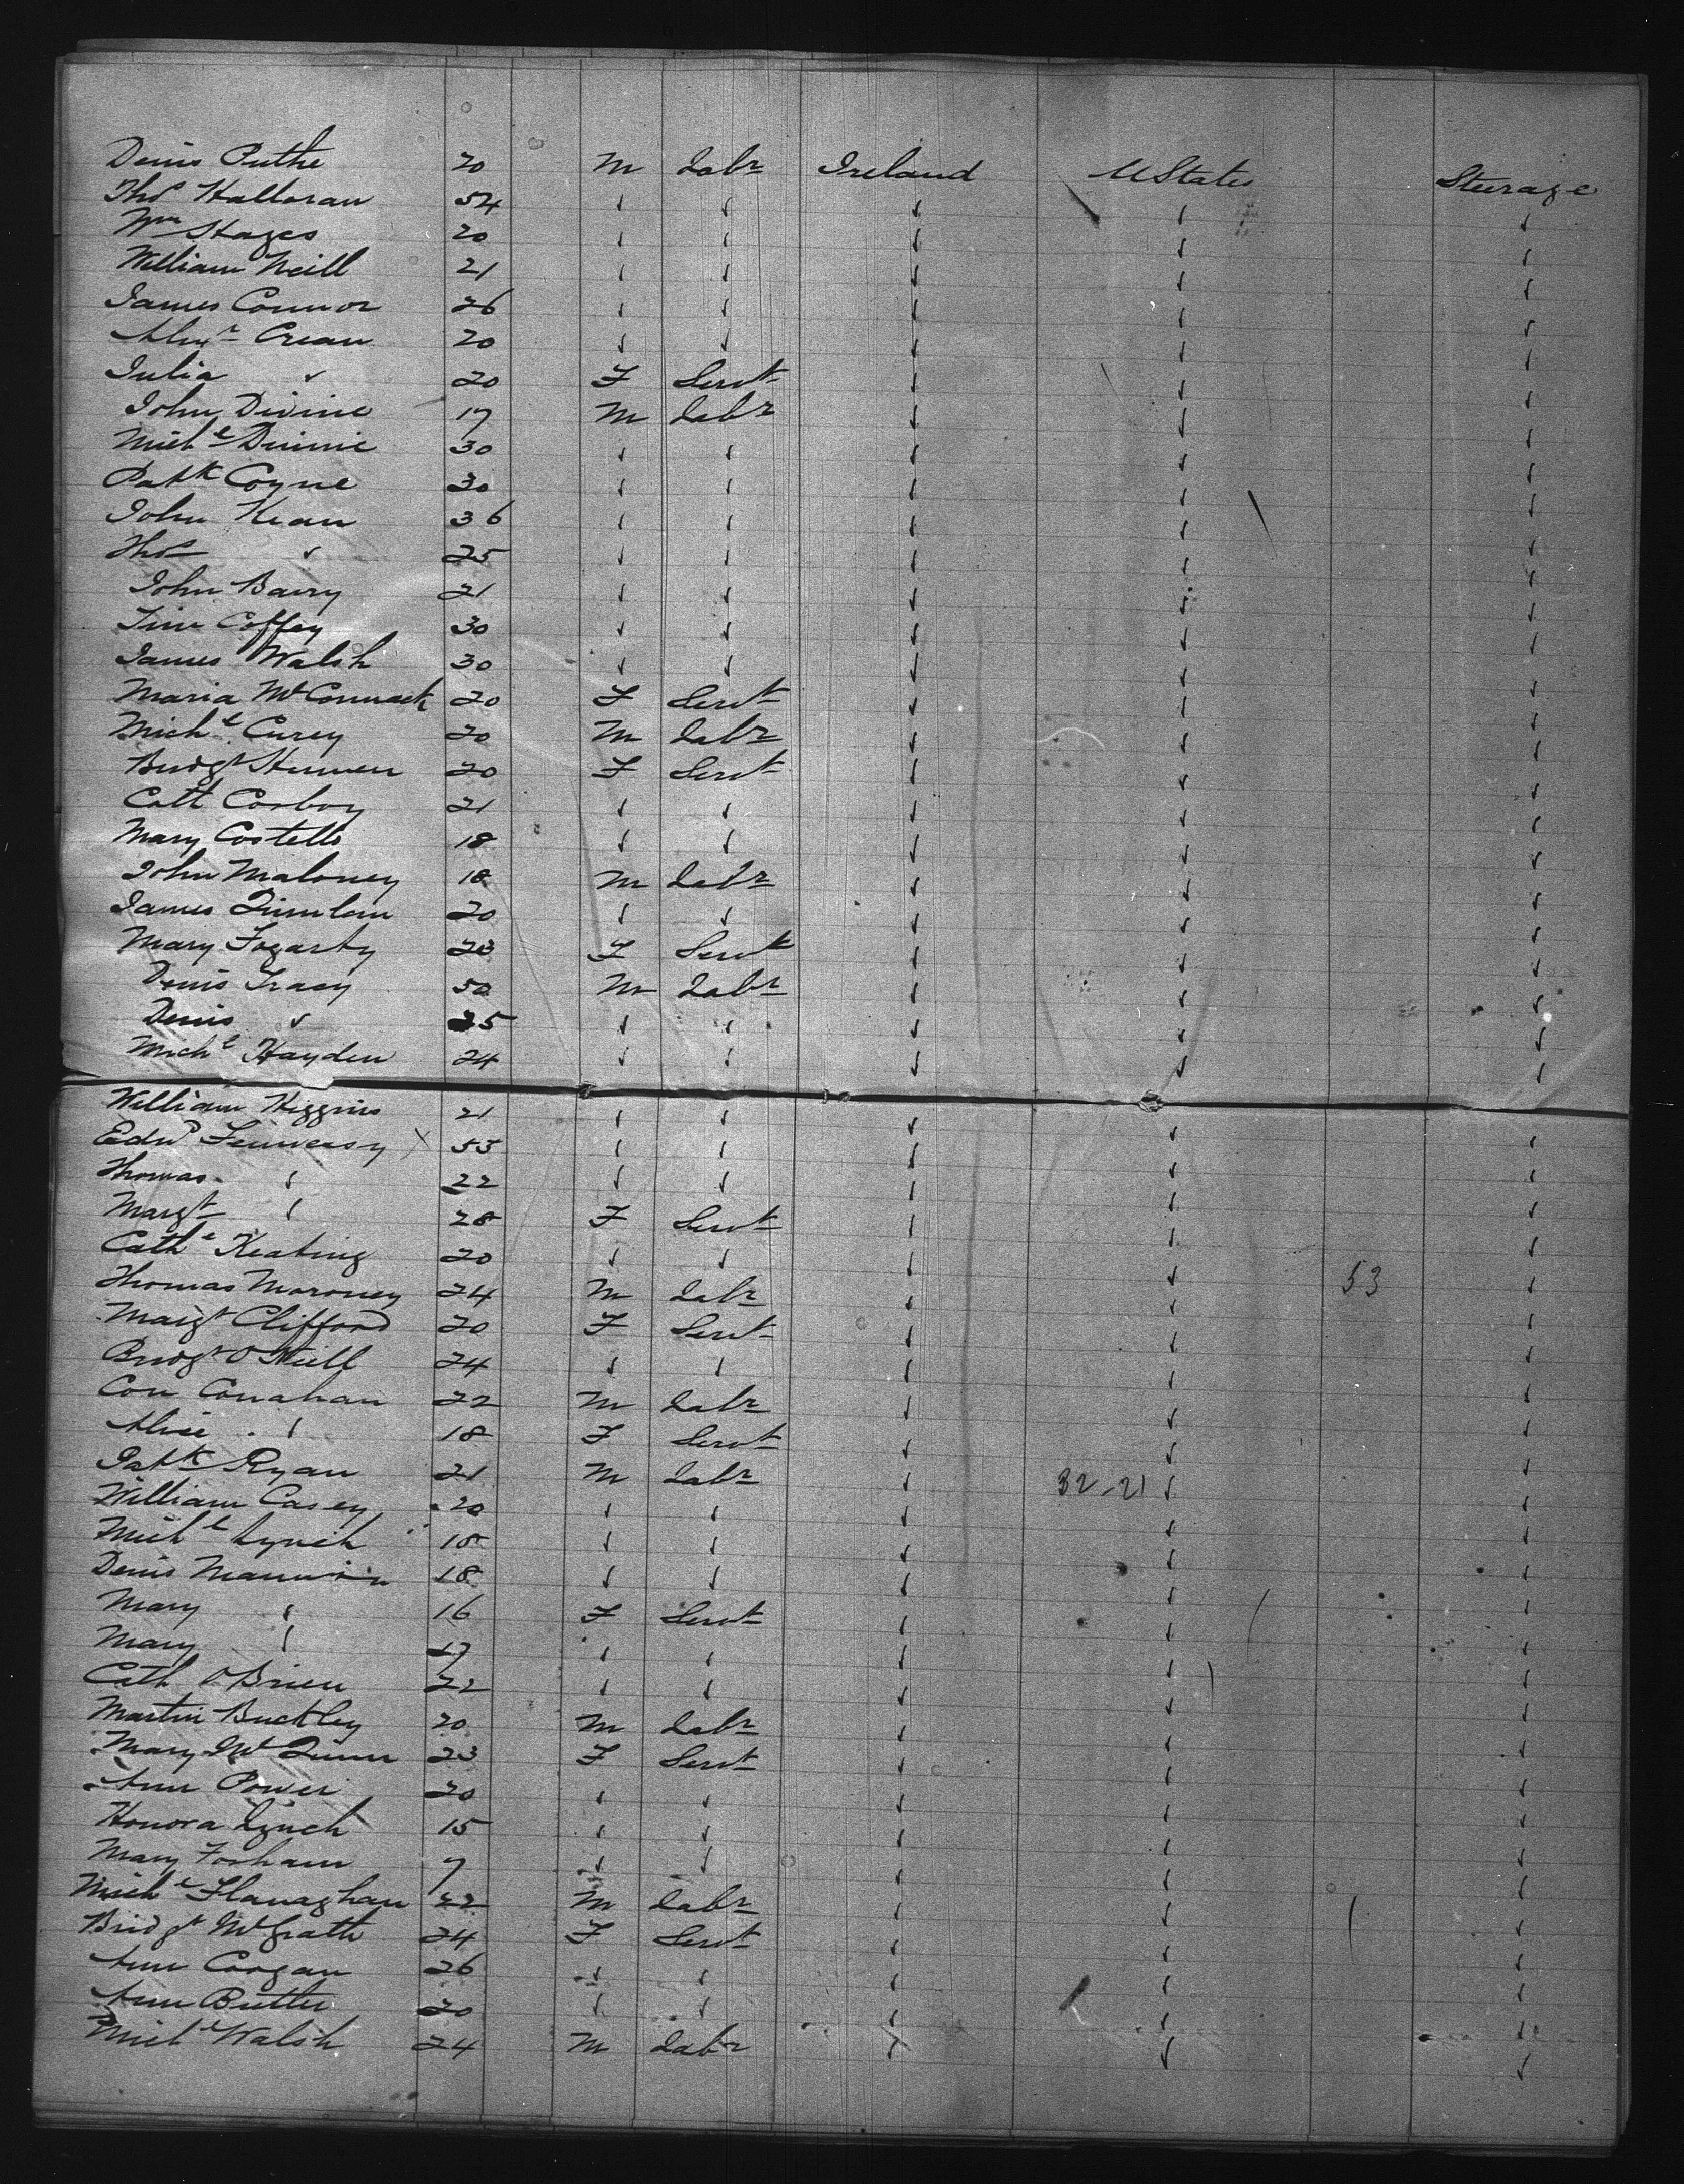 Denis Ruthe 20 M Labr Ireland U States Steerage
Thos Halloran 54 " " " " "
Wm Hayes 20 " " " " "
William Neill 21 " " " " "
James Connor 26 " " " " "
Alexr Crean 20 " " " " "
Julia " 20 F Servt " " "
John Divine 17 M Labr " " "
Michl Dinnie 30 " " " " "
Patk Coyne 30 " " " " "
John Kean 36 " " " " "
Thos " 25 " " " " "
John Barry 21 " " " " "
Tim Coffey 30 " " " " "
James Walsh 30 " " " " "
Maria McCormack 20 F Servt " " "
Michl Curey 20 M Labr " " "
Bridgt 20 F Servt " " "
Cath Corboy 21 " " " " "
Mary Costello 18 " " " " "
John Maloney 18 M Labr " " "
James Quinlan 20 " " " " "
Mary Fogarty 23 F Servt " " "
Denis Tracy 50 M Labr " " "
Denis " 25 " " " " "
Michl Hayden 24 " " " " "
William Higgins 21 " " " " "
Edwd Fennessy X 55 " " " " "
Thomas " 22 " " " " "
Margt " 28 F Servt " " "
Cathe Keating 20 " " " " "
Thomas Moroney 24 M Labr " " 53 "
Margt Clifford 20 F Servt " " "
Bridgt O'Neill 24 " " " " "
Con Conahan 22 M Labr " " "
Alice " 18 F Servt " " "
Patk Ryan 21 M Labr " 32-21 " "
William Casey 20 " " " " "
Michl Lynch 18 " " " " "
Denis Mannion 18 " " " " "
Mary " 16 F Servt " " "
Mary " 17 " " " " "
Cath O'Brien 22 " " " " "
Martin Buckley 20 M Labr " " "
Mary McQuinn 23 F Servt " " "
Ann Power 20 " " " " "
Honora Lynch 15 " " " " "
Mary Forham 7 " " " " "
Michl Flanaghan 22 M Labr " " "
Bridgt McGrath 24 F Servt " " "
Ann Coogan 26 " " " " "
Ann Butler 20 " " " " "
Michl Walsh 24 M Labr " " "